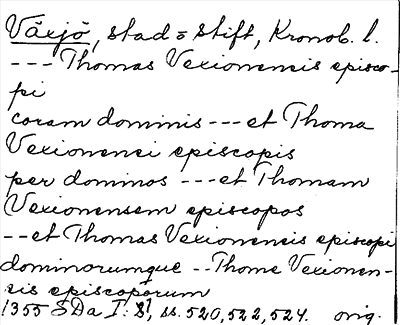 Växjö, stad = stift, Kronob. l.
--- Thomas Vexionensis episco-
pi
coram dominis --- et Thoma
Vexionensi episcopis
per dominos --- et Thomam
Vexionensem episcopos
-- et Thomas Vexionensis episcopi
dominorumque -- Thome Vexionen-
sis episcoporum
1355 SDa I: ss. 520, 522, 524. orig.